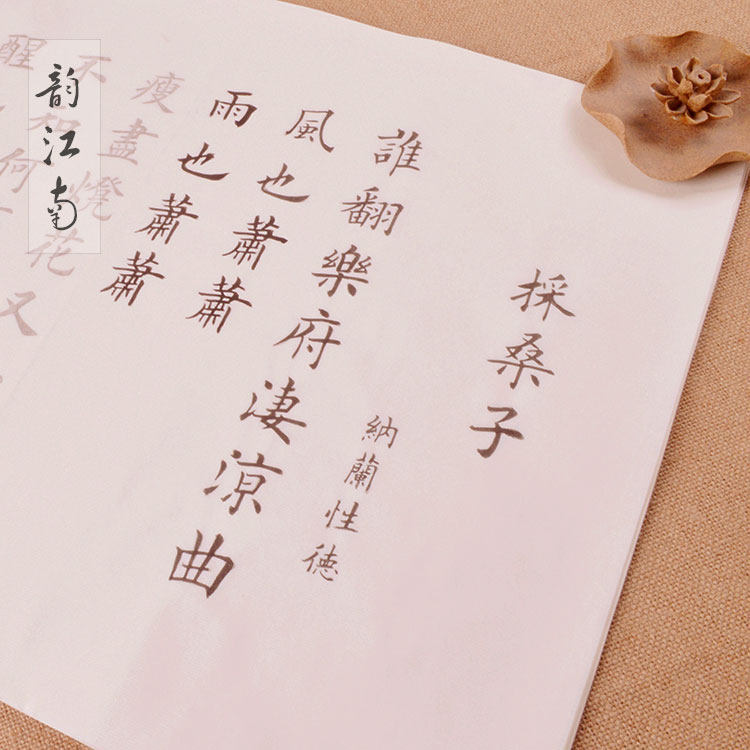 採桑子
納蘭性德
誰翻樂府淒涼曲
風也蕭蕭
雨也蕭蕭
瘦盡燈花又
不知何
醒
韵江南